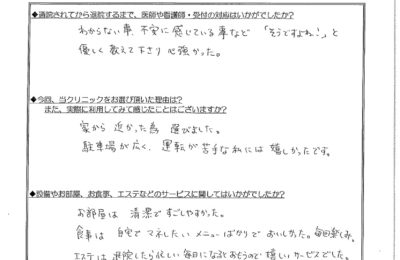 ◆通院されてから退院するまで、医師や看護師・受付の対応はいかがでしたか?
わからない事、不安に感じている事など「そうですよね!」と
優しく教えて下さり 心強かった。
◆今回、当クリニックをお選び頂いた理由は?
また、実際に利用してみて感じたことはございますか?
家から 近かった為 選びました。
駐車場が広く、運転が苦手な私には嬉しかったです。
◆設備やお部屋、お食事、エステなどのサービスに関してはいかがでしたか?
お部屋は 清潔で すごしやすかった。
食事は 自宅で マネしたい メニューばかりで おいしかった。毎回楽しみ。
エステは 退院したら忙しい毎日になると思うので 嬉しい サービスでした。